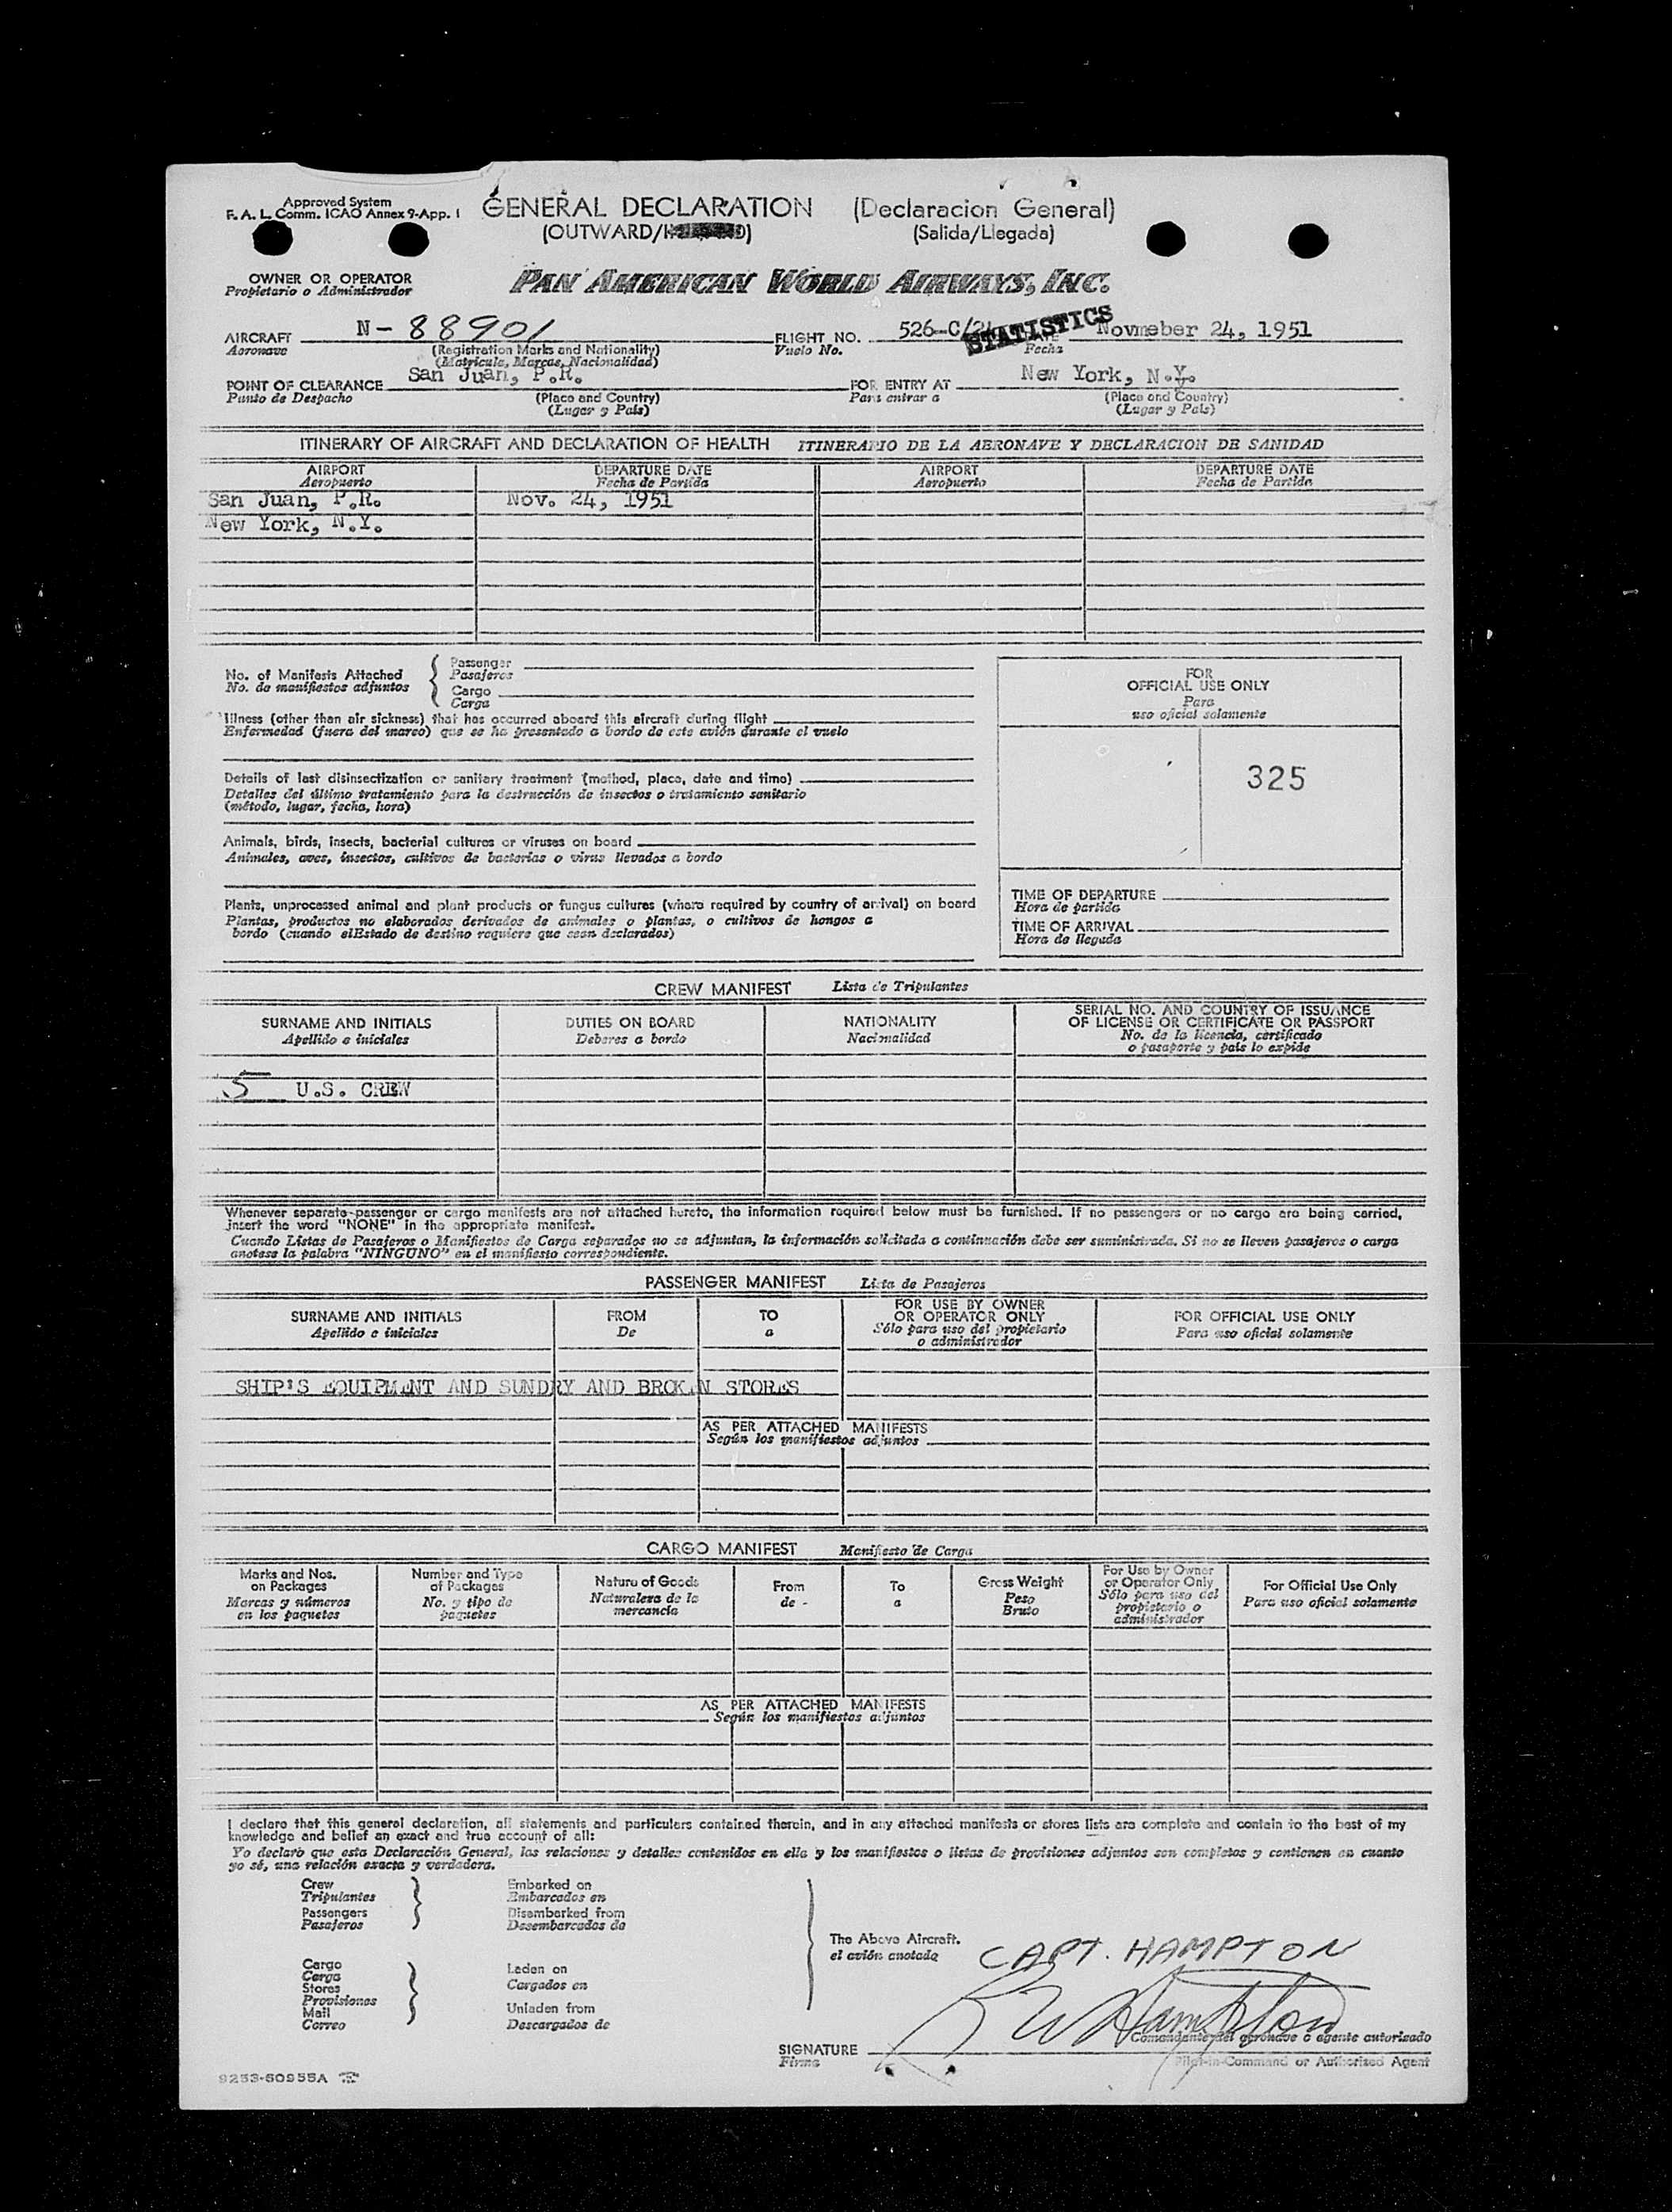 Approved System
F. A. L. Comm. ICAO Annex 9-App. 1
GENERAL DECLARATION (Declaracion General)
(OUTWARD/ (Salida/Llegada)
OWNER OR OPERATOR
Propietario o Administrador
PAN AMERICAN WORLD AIRWAYS, INC.
AIRCRAFT N-88901 FLIGHT NO. 526-C/24 STATISTICS DATE Novmeber 24, 1951
Aeronave (Registration Marks and Nationality) Vuelo No. Fecha
(Matricula, Marcas, Nacionalidad)
POINT OF CLEARANCE San Juan, P.R. FOR ENTRY AT New York, N.Y.
Punto de Despacho (Place and Country) Para entrar a (Place and Country)
(Lugar y País) (Lugar y País)
ITINERARY OF AIRCRAFT AND DECLARATION OF HEALTH ITINERARIO DE LA AERONAVE Y DECLARACION DE SANIDAD
AIRPORT DEPARTURE DATE AIRPORT DEPARTURE DATE
Aeropuerto Fecha de Partida Aeropuerto Fecha de Partida
San Juan, P.R. Nov. 24, 1951
New York, N.Y.
No. of Manifests Attached
No. de manifiestos adjuntos
Passenger
Pasajeros
Cargo
Carga
Illness (other than air sickness) that has occurred aboard this aircraft during flight
Enfermedad (fuera del mareo) que se ha presentado a bordo de este avión durante el vuelo
Details of last disinsectization or sanitary treatment (method, place, date and time)
Detalles del último tratamiento para la destrucción de insectos o tratamiento sanitario
(método, lugar, fecha, hora)
Animals, birds, insects, bacterial cultures or viruses on board
Animales, aves, insectos, cultivos de bacterias o virus llevados a bordo
Plants, unprocessed animal and plant products or fungus cultures (where required by country of arrival) on board
Plantas, productos no elaborados derivados de animales o plantas, o cultivos de hongos a
bordo (cuando elEstado de destino requiere que sean declarados)
FOR
OFFICIAL USE ONLY
Para
uso oficial solamente
325
TIME OF DEPARTURE
Hora de partida
TIME OF ARRIVAL
Hora de llegada
CREW MANIFEST Lista de Tripulantes
SURNAME AND INITIALS DUTIES ON BOARD NATIONALITY SERIAL NO. AND COUNTRY OF ISSUANCE
OF LICENSE OR CERTIFICATE OR PASSPORT
Apellido e iniciales Deberes a bordo Nacionalidad No. de la licencia, certificado
o pasaporte y país lo expide
5 U.S. CREW
Whenever separate passenger or cargo manifests are not attached hereto, the information required below must be furnished. If no passengers or no cargo are being carried,
insert the word "NONE" in the appropriate manifest.
Cuando Listas de Pasajeros o Manifiestos de Carga separados no se adjuntan, la información solicitada a continuación debe ser suministrada. Si no se lleven pasajeros o carga
anotese la palabra "NINGUNO" en el manifiesto correspondiente.
PASSENGER MANIFEST Lista de Pasajeros
SURNAME AND INITIALS FROM TO FOR USE BY OWNER
OR OPERATOR ONLY FOR OFFICIAL USE ONLY
Apellido e iniciales De a Sólo para uso del propietario
o administrador Para uso oficial solamente
SHIP'S EQUIPMENT AND SUNDRY AND BROKEN STORES
AS PER ATTACHED MANIFESTS
Según los manifiestos adjuntos
CARGO MANIFEST Manifiesto de Carga
Marks and Nos.
on Packages
Marcas y números
en los paquetes
Number and Type
of Packages
No. y tipo de
paquetes
Nature of Goods
Naturaleza de la
mercancía
From
de -
To
a
Gross Weight
Peso
Bruto
For Use by Owner
or Operator Only
Sólo para uso del
propietario o
administrador
For Official Use Only
Para uso oficial solamente
AS PER ATTACHED MANIFESTS
Según los manifiestos adjuntos
I declare that this general declaration, all statements and particulars contained therein, and in any attached manifests or stores lists are complete and contain to the best of my
knowledge and belief an exact and true account of all:
Yo declaro que esta Declaración General, las relaciones y detalles contenidos en ella y los manifiestos o listas de provisiones adjuntos son completos y contienen en cuanto
yo sé, una relación exacta y verdadera.
Crew
Tripulantes
Passengers
Pasajeros
Embarked on
Embarcados en
Disembarked from
Desembarcados de
Cargo
Carga
Stores
Provisiones
Mail
Correo
Laden on
Cargados en
Unladen from
Descargados de
The Above Aircraft.
el avión anotado
CAPT. HAMPTON
R W Hampton
Comandante del aeronave o agente autorizado
SIGNATURE
Firma
Pilot-in-Command or Authorized Agent
9253-50955A